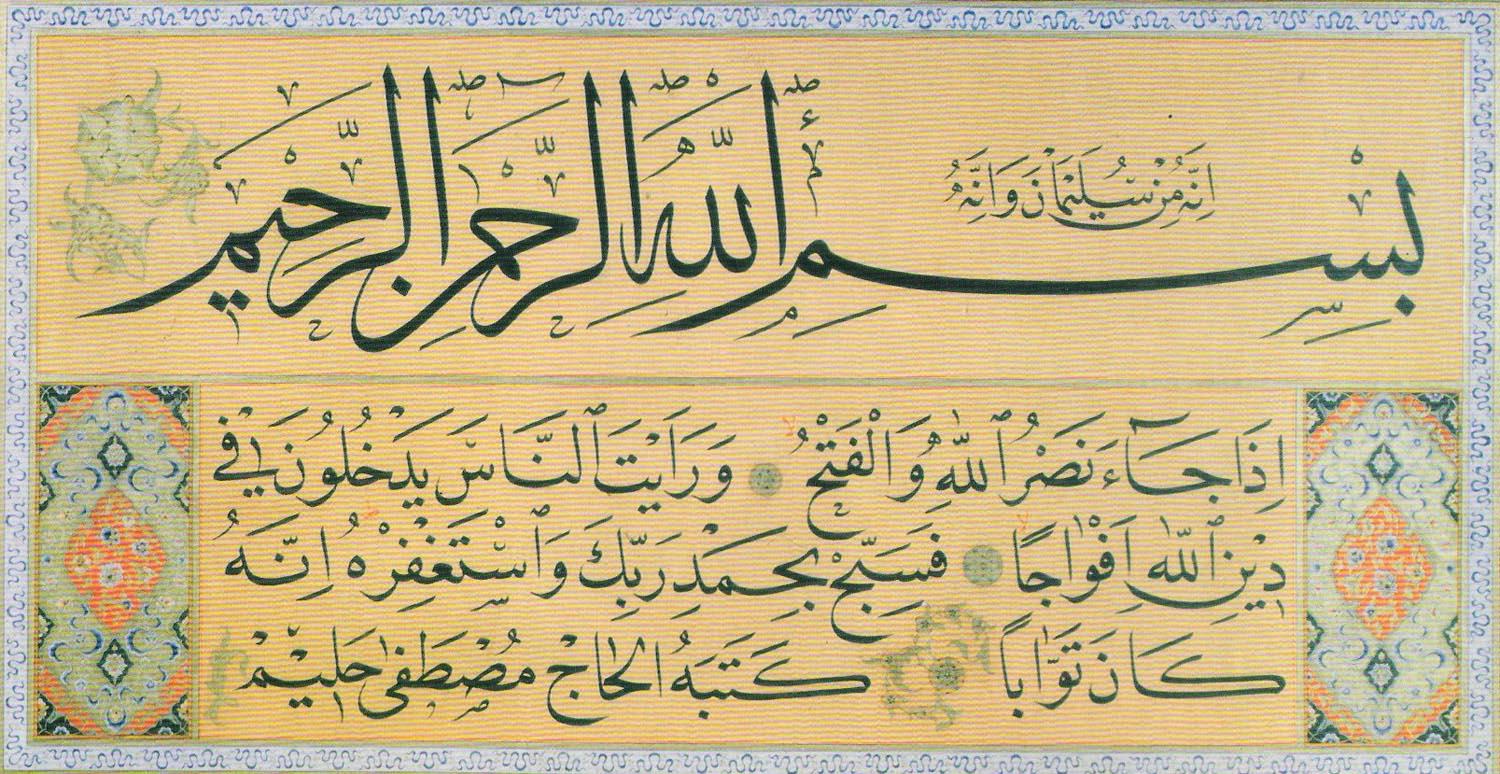 اِنَّهُ مِنْ سُلَيْمَانَ وَاِنَّهُ
بِسْمِ اللّٰهِ الرَّحْمٰنِ الرَّحِيمِ
اِذَا جَٓاءَ نَصْرُ ٱللّٰهِ وَالْفَتْحُ وَرَاَيْتَ ٱلنَّاسَ يَدْخُلُونَ فِي
دِينِ ٱللّٰهِ اَفْوَاجًا فَسَبِّحْ بِحَمْدِ رَبِّكَ وَٱسْتَغْفِرْهُ اِنَّهُ
كَانَ تَوَّابًا كَتَبَهُ الحَاجْ مُصْطَفٰى حَلِيْم